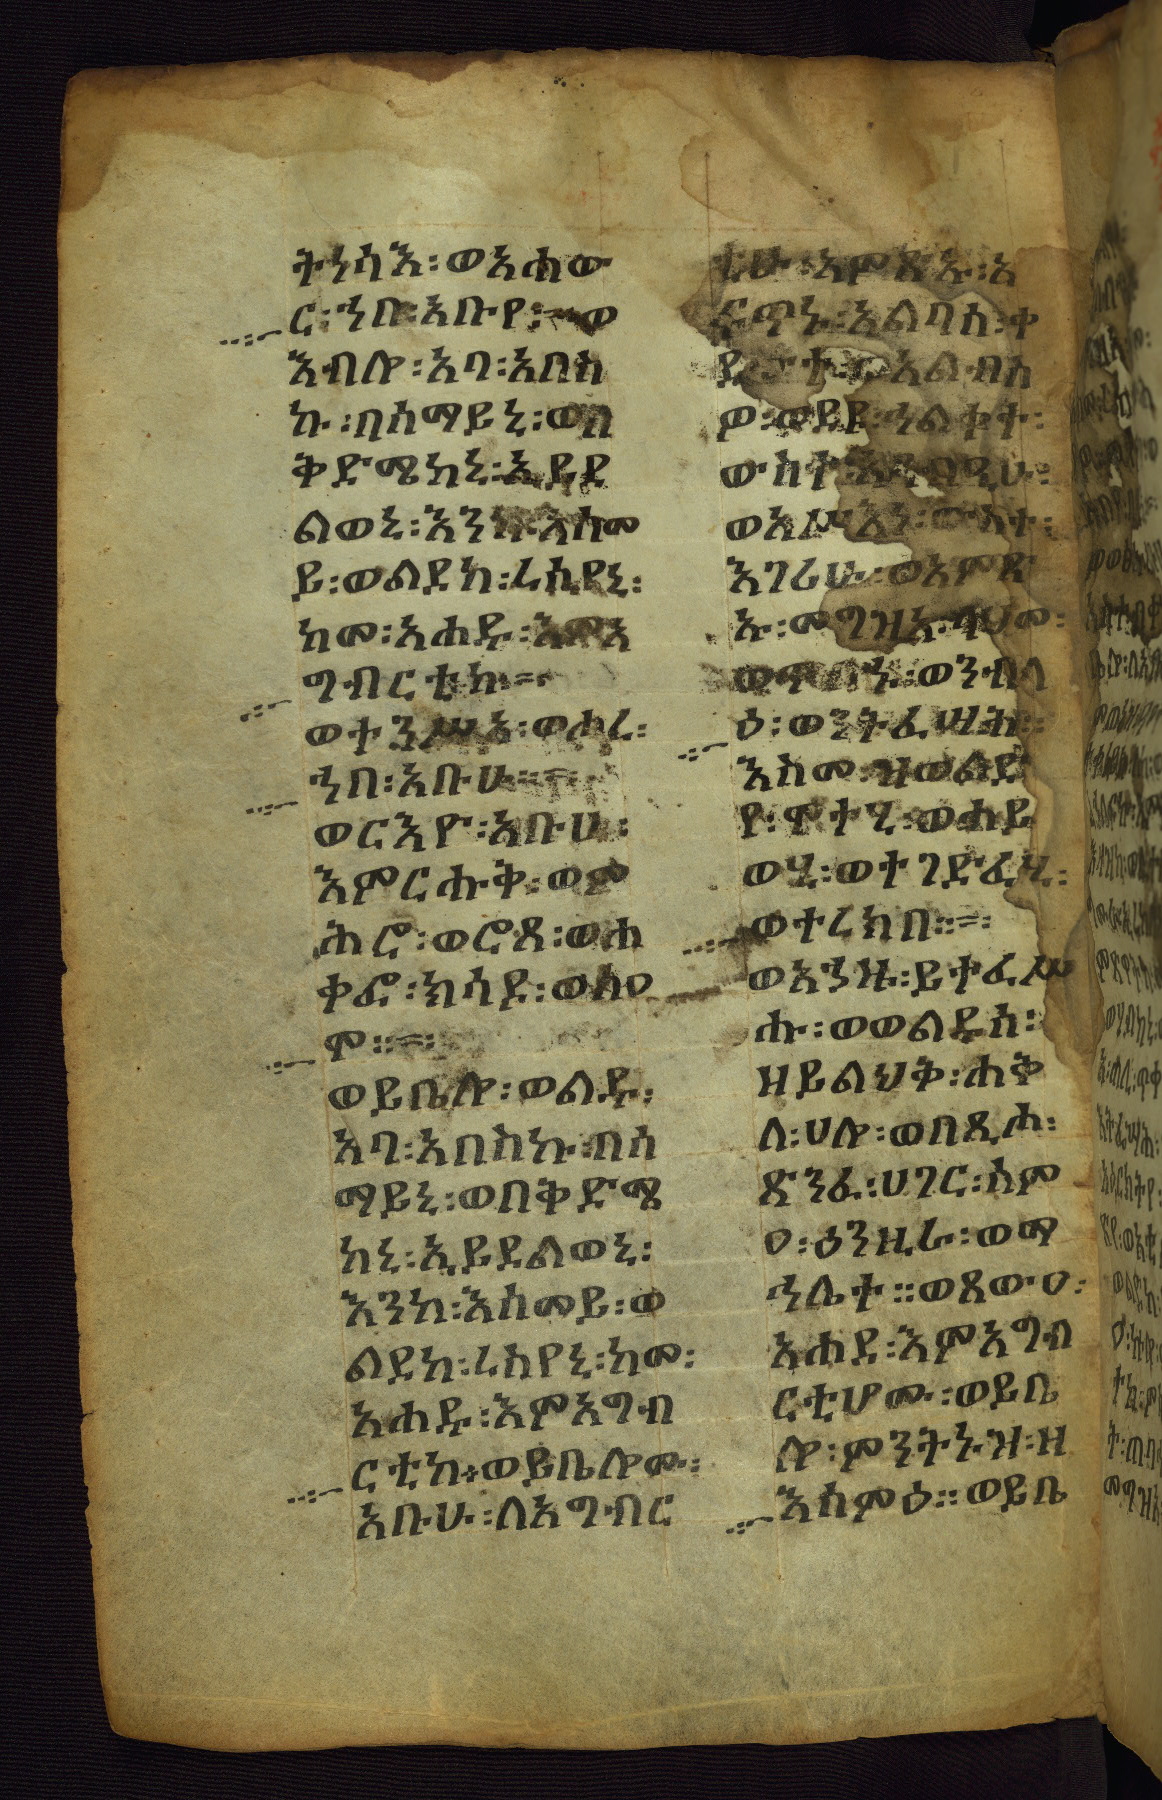 ትነሳእ፡ወእሐው
ር፡ኀበ፡አቡየ፡ወ
እብሎ፡አባ፡አበስ
ኩ፡በሰማይኒ፡ወበ
ቅድሜከኒ፡ኢይደ
ልወኒ፡እንከ፡እሰመ
ይ፡ወልደከ፡ረስየኒ፡
ከመ፡አሐዱ፡እምአ
ግብርቲከ፡፡
ወተንሥአ፡ወሖረ፡
ኀበ፡አቡሁ፡፡
ወርእዮ፡አቡሁ፡
እምርሑቅ፡ወም
ሕሮ፡ወሮጸ፡ወሐ
ቀፎ፡ክሳደ፡ወሰዐ
ሞ፡፡
ወይቤሎ፡ወልዱ፡
አባ፡አበስኩ፡በሰ
ማይኒ፡ወበቅድሜ
ከኒ፡ኢይደልወኒ፡
እንከ፡እሰመይ፡ወ
ልደከ፡ረስየኒ፡ከመ፡
አሐዱ፡እምአግብ
ርቲከ፡ወይቤሎሙ፡
አቡሁ፡ለአግብር
ቲሁ፡አምጽኡ፡አ
ፍጥኑ፡አልባሰ፡ቀ
ወአልብስ
ዎ፡ወደዩ፡ኅልቀተ፡
ውስተ፡
ወአሥአነ፡ውስተ፡
እገሪሁ፡ወአምጽ
ኡ፡መግዝአ፡ላህመ፡
ወንብላ
ዕ፡ወንትፈሣሕ፡፡
እስመ፡ዝወልድ
የ፡ሞተሂ፡ወሐይ
ወሂ፡ወተገድፈሂ፡
ወተረክበ፡፡
ወእንዘ፡ይተፈሥ
ሑ፡ወወልዱሰ፡
ዘይልህቅ፡ሐቅ
ለ፡ሀሎ፡ወበጺሖ፡
ጽንፈ፡ሀገር፡ሰም
ዐ፡ዕንዚራ፡ወማ
ኅሌተ፡፡ወጸውዐ፡
አሐደ፡እምአግብ
ርቲሆሙ፡ወይቤ
ሎ፡ምንትኑ፡ዝ፡ዘ
እሰምዕ፡፡ወይቤ